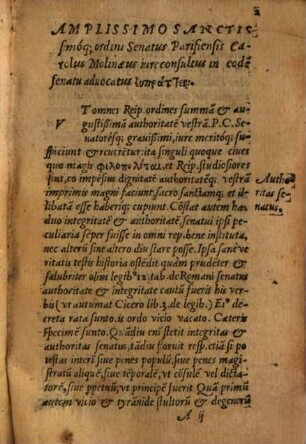 2
AMPLISSIMO SANCTIS-
simóq; ordini Senatus Parisiensis Ca-
rolus Molinæus iureconsultus in eodẽ
senatu advocatus
VT omnes Reip. ordines summã & au-
gustissimã authoritatẽ vestrã. P.C. Se-
natoresq; gravissimi, iure meritóq; su-
spiciunt & reverẽtur ita singuli quoque ciues
quo magis & Reip. studiosiores
sunt, eo impẽsius dignitatẽ authoritatẽq; vestrã
imprimis magni faciunt, sacro sanctamq; et il-
libatã esse haberiq; cupiunt. Cõstat autem hæc
duo integritatẽ & authoritatẽ, senatui ipsi pe-
culiaria sẽper fuisse in omni rep. bene instituta,
nec alterũ sine altero diu stare posse. Ipsa sanè ve-
ritatis testis historia ostẽdit quàm prudẽter &
salubriter olim legib9 12. tab. de Romani senatus
authoritate & integritate cautũ fuerit his ver-
bis (vt autumat Cicero lib. 3. de legib.) Ei9 de-
creta rata sunto. is ordo vicio vacato. Cæteris
specimẽ sunto. Quãdiu enĩ stetit integritas &
authoritas senatus, tãdiu floruit resp. etiã si po-
testas interĩ siue penes populũ, siue penes magi-
stratũ aliquẽ, siue tẽporalẽ, vt cõsulẽ vel dicta-
torẽ, siue ppetuũ, vt principẽ fuerit. Quã primũ
autem vicio & tyrãnide stultorũ & degenerũ
A ij
Autho-
ritas se-
natus.